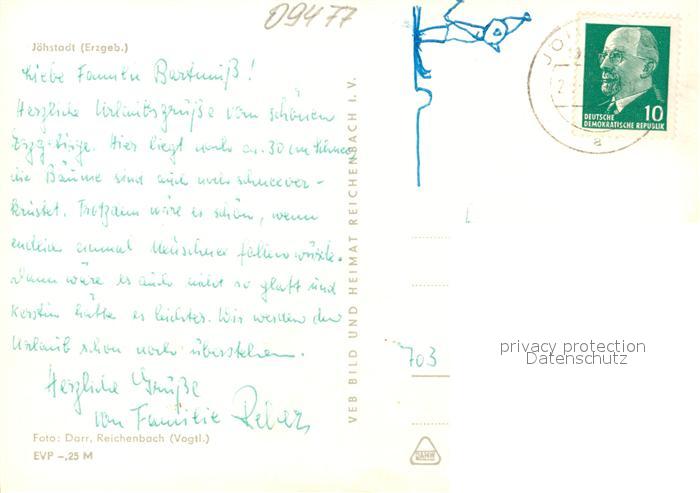 09477
Jöhstadt (Erzgeb.)
Liebe Familie Bartmuß!
Herzliche Urlaubsgrüße vom schönen
Erzgebirge. Hier liegt noch ca. 30 cm Schnee
die Bäume sind auch noch schneever-
krüstet. Trotzdem wäre es schön, wenn
endlich einmal Neuschnee fallen würde.
Dann wäre es auch nicht so glatt und
Kerstin hätte es leichter. Wir werden den
Urlaub schon noch überstehen.
Herzliche Grüße
von Familie
Foto: Darr, Reichenbach (Vogtl.)
EVP -,25 M
VEB BILD UND HEIMAT REICHENBACH I. V.
JÖH
a
10
DEUTSCHE
DEMOKRATISCHE REPUBLIK
703
privacy protection
Datenschutz